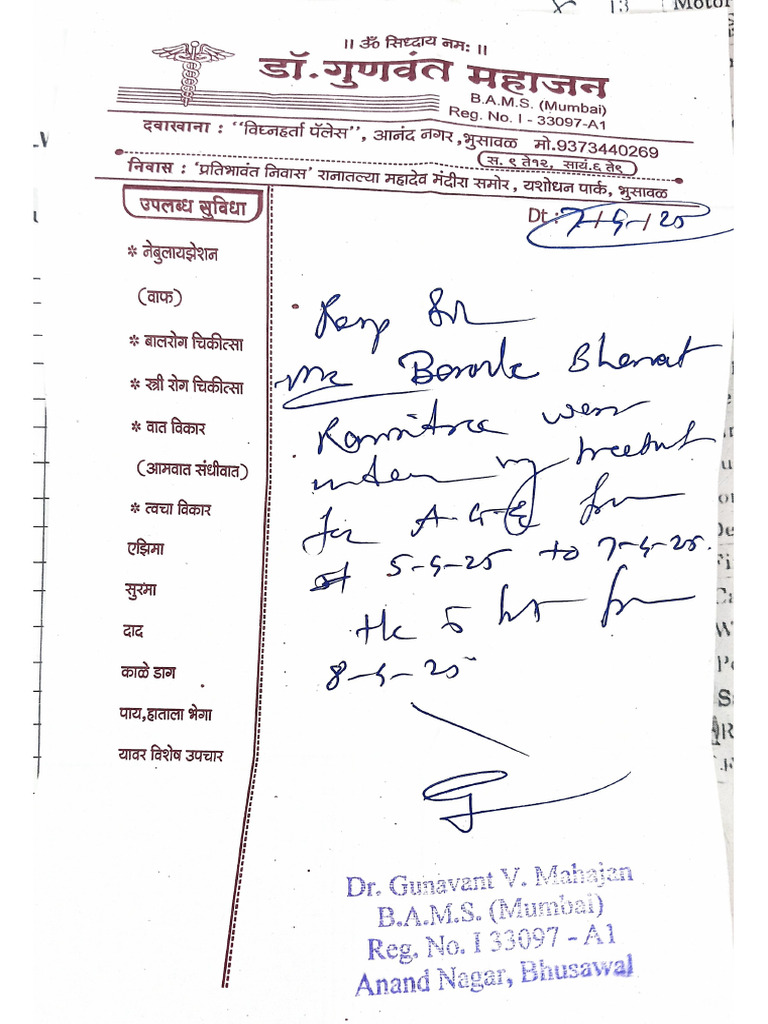 13 Motor
|| ॐ सिध्दाय नमः ||
डॉ. गुणवंत महाजन
B.A.M.S. (Mumbai)
Reg. No. I - 33097-A1
दवाखाना : "विघ्नहर्ता पॅलेस", आनंद नगर, भुसावळ मो.9373440269
स. ९ ते १२, सायं. ६ ते ९
निवास : 'प्रतिभावंत निवास' रानातल्या महादेव मंदीरा समोर, यशोधन पार्क, भुसावळ
उपलब्ध सुविधा
Dt : 7-5-25
* नेबुलायझेशन
(वाफ)
* बालरोग चिकीत्सा
* स्त्री रोग चिकीत्सा
* वात विकार
(आमवात संधीवात)
* त्वचा विकार
एझिमा
सुरमा
दाद
काळे डाग
पाय,हाताला भेगा
यावर विशेष उपचार
Resp Sir
Mr Borole Bharat
was
under my treatment
for A-G-E from
5-5-25 to 7-5-25.
He is fit from
8-5-25
Dr. Gunavant V. Mahajan
B.A.M.S. (Mumbai)
Reg. No. I 33097 - A1
Anand Nagar, Bhusawal